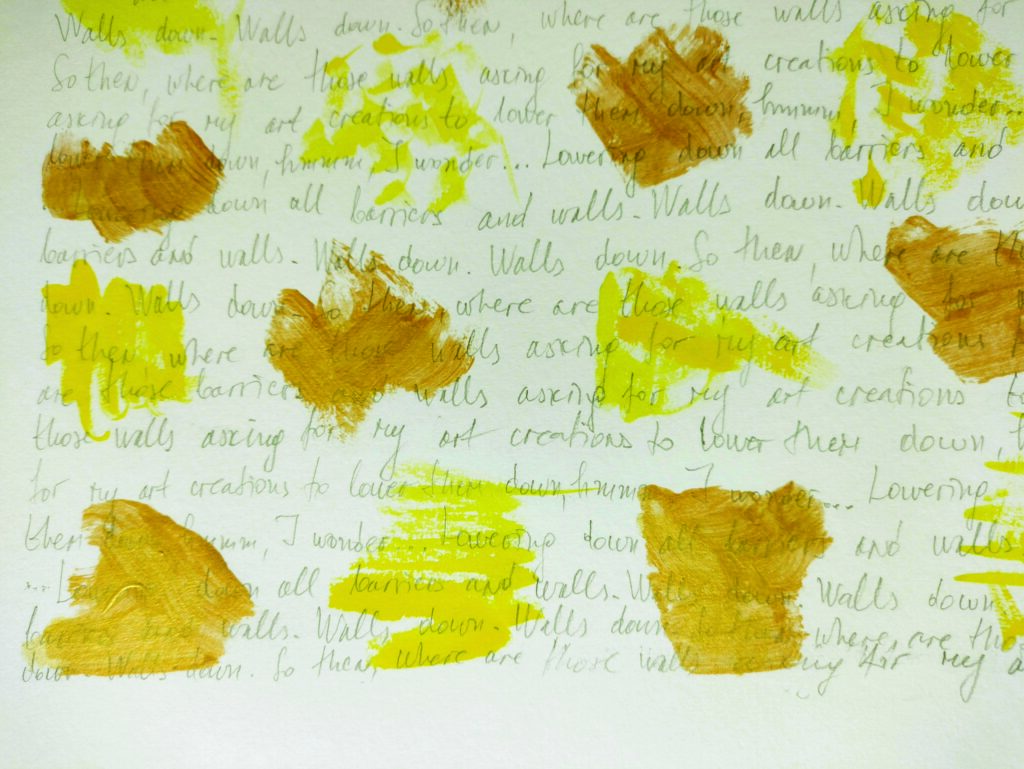 are
Walls down. Walls down. So then, where are those walls asking for
So then, where are those walls asking for my art creations to lower
asking for my art creations to lower them down, hmmm, I wonder...
lower them down, hmmm, I wonder... Lowering down all barriers and
Lowering down all barriers and walls. Walls down. Walls dow
barriers and walls. Walls down. Walls down. So then, where are th
down. Walls down. So then, where are those walls asking for
So then where are those walls asking for my art creations
are those barriers and walls asking for my art creations to
those walls asking for my art creations to lower them down,
for my art creations to lower them down, hmmm I wonder... Lowering
them down hmmm, I wonder... Lowering down all barriers and walls
... Lowering down all barriers and walls. Walls down. Walls down
barriers and walls. Walls down. Walls down where, are tho
down. Walls down. So then, where are those walls asking for my a